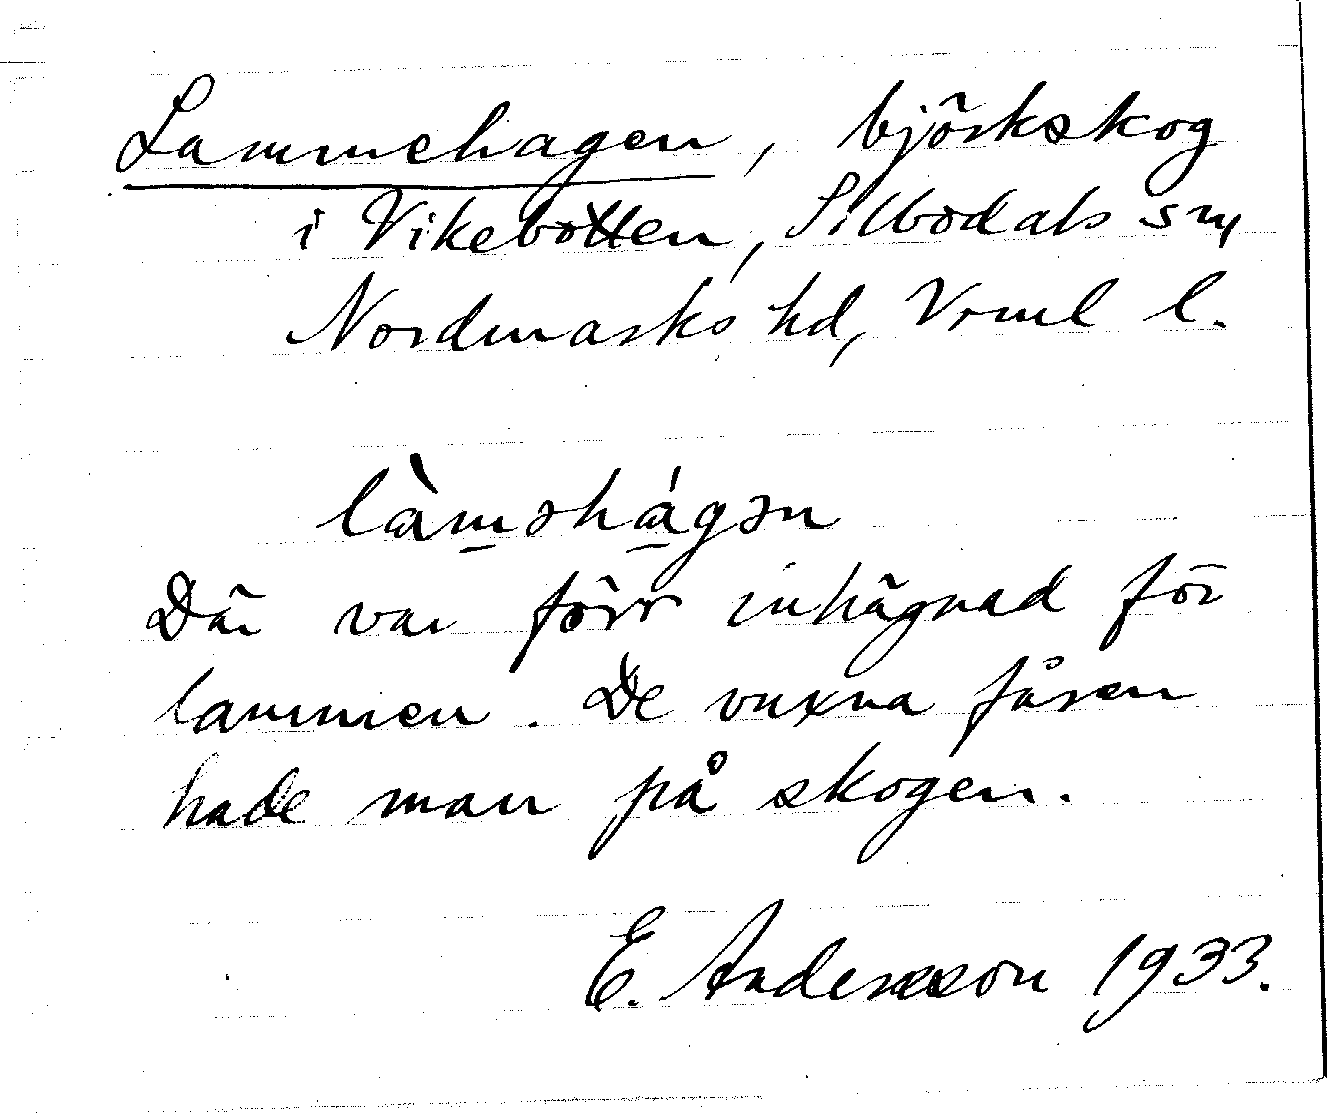 Lammehagen, björkskog
i Vikebotten, Silbodals sn,
Nordmarks hd, Vrml l.
làməhágən
Där var förr inhägnad för
lammen. De vuxna fåren
hade man på skogen.
E. Andersson 1933.